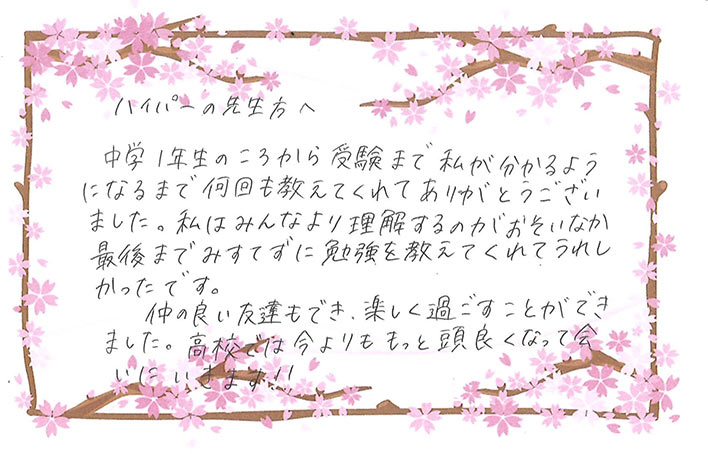 ハイパーの先生方へ
中学1年生のころから受験まで私が分かるよう
になるまで何回も教えてくれてありがとうござい
ました。私はみんなより理解するのがおそいなか
最後までみすてずに勉強を教えてくれてうれし
かったです。
仲の良い友達もでき、楽しく過ごすことができ
ました。高校では今よりももっと頭良くなって会
いにいきます!!